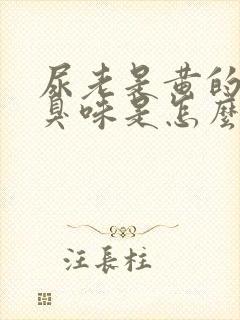 尿老是黄的
臭味是怎麼
汪長柱